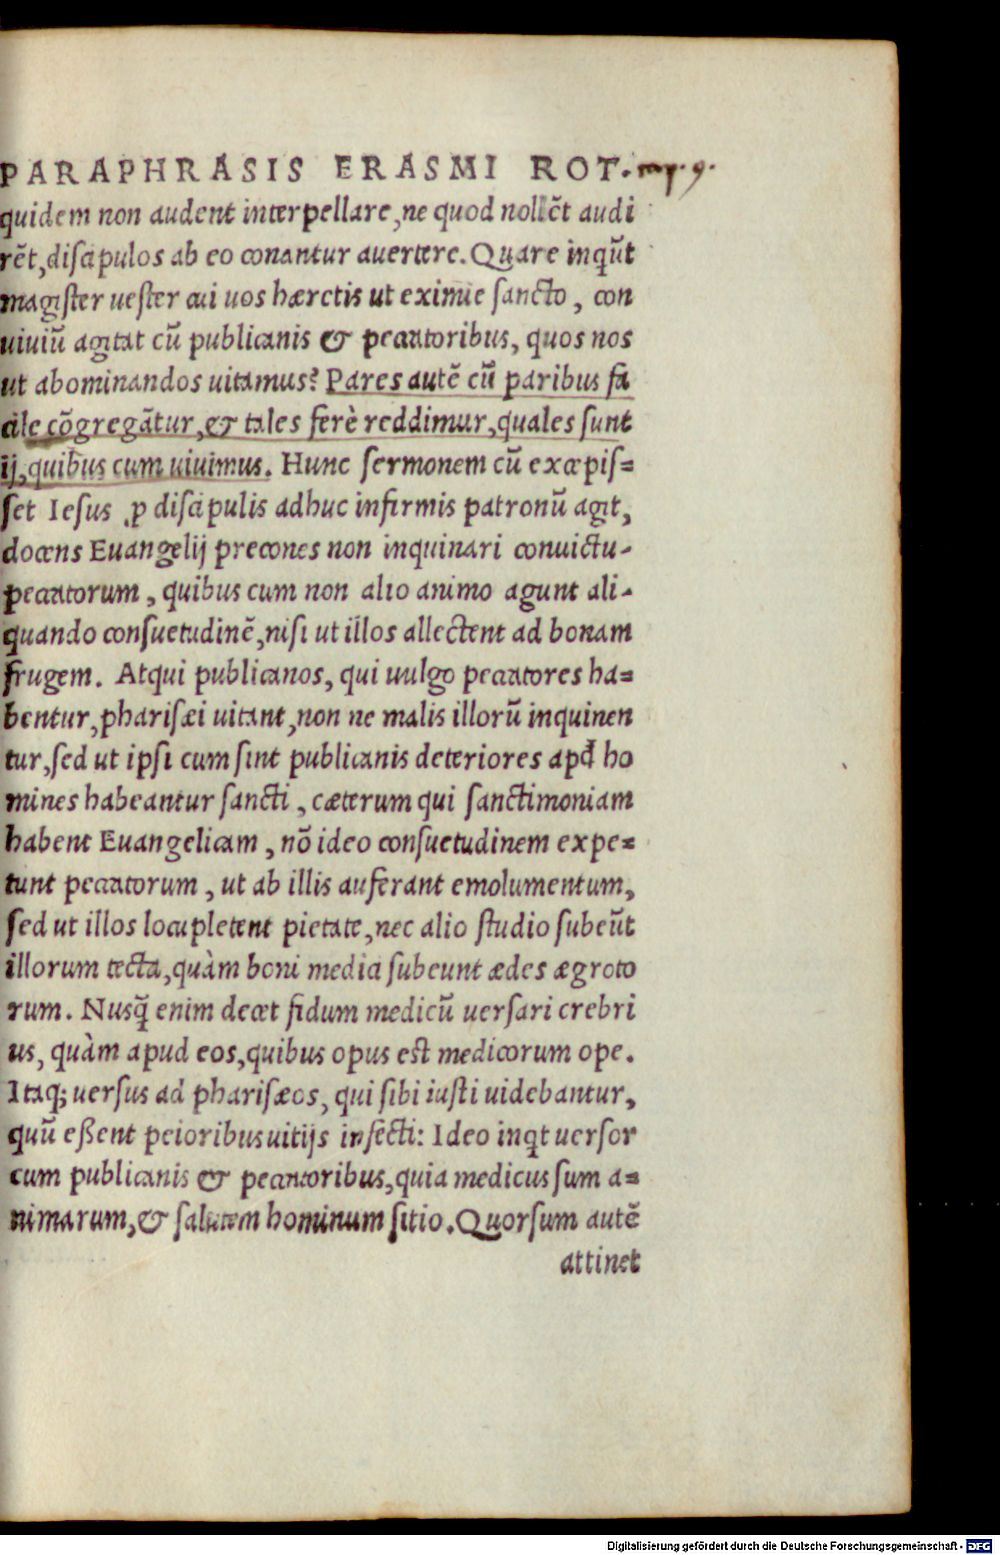 PARAPHRASIS ERASMI ROT.
quidem non audent interpellare, ne quod nollēt audi
rēt, discipulos ab eo conantur auertere. Quare inqūt
magister uester cui uos hæretis ut eximie sancto, con
uiuiū agitat cū publicanis & peccatoribus, quos nos
ut abominandos uitamus? Pares autē cū paribus fa
cile cōgregātur, & tales ferè reddimur, quales sunt
ij, quibus cum uiuimus. Hunc sermonem cū excepis=
set Iesus ꝓ discipulis adhuc infirmis patronū agit,
docens Euangelij precones non inquinari conuictu-
peccatorum, quibus cum non alio animo agunt ali-
quando consuetudinē, nisi ut illos allectent ad bonam
frugem. Atqui publicanos, qui uulgo peccatores ha=
bentur, pharisæi uitant, non ne malis illorū inquinen
tur, sed ut ipsi cum sint publicanis deteriores apđ ho
mines habeantur sancti, cæterum qui sanctimoniam
habent Euangelicam, nō ideo consuetudinem expe=
tunt peccatorum, ut ab illis auferant emolumentum,
sed ut illos locupletent pietate, nec alio studio subeūt
illorum tecta, quàm boni medici subeunt ædes ægroto
rum. Nusq̃ enim decet fidum medicū uersari crebri
us, quàm apud eos, quibus opus est medicorum ope.
Itaq; uersus ad pharisæos, qui sibi iusti uidebantur,
quū eßent peioribus uitijs infecti: Ideo inqt uersor
cum publicanis & peccatoribus, quia medicus sum a=
nimarum, & salutem hominum sitio. Quorsum autē
attinet
Digitalisierung gefördert durch die Deutsche Forschungsgemeinschaft - DFG